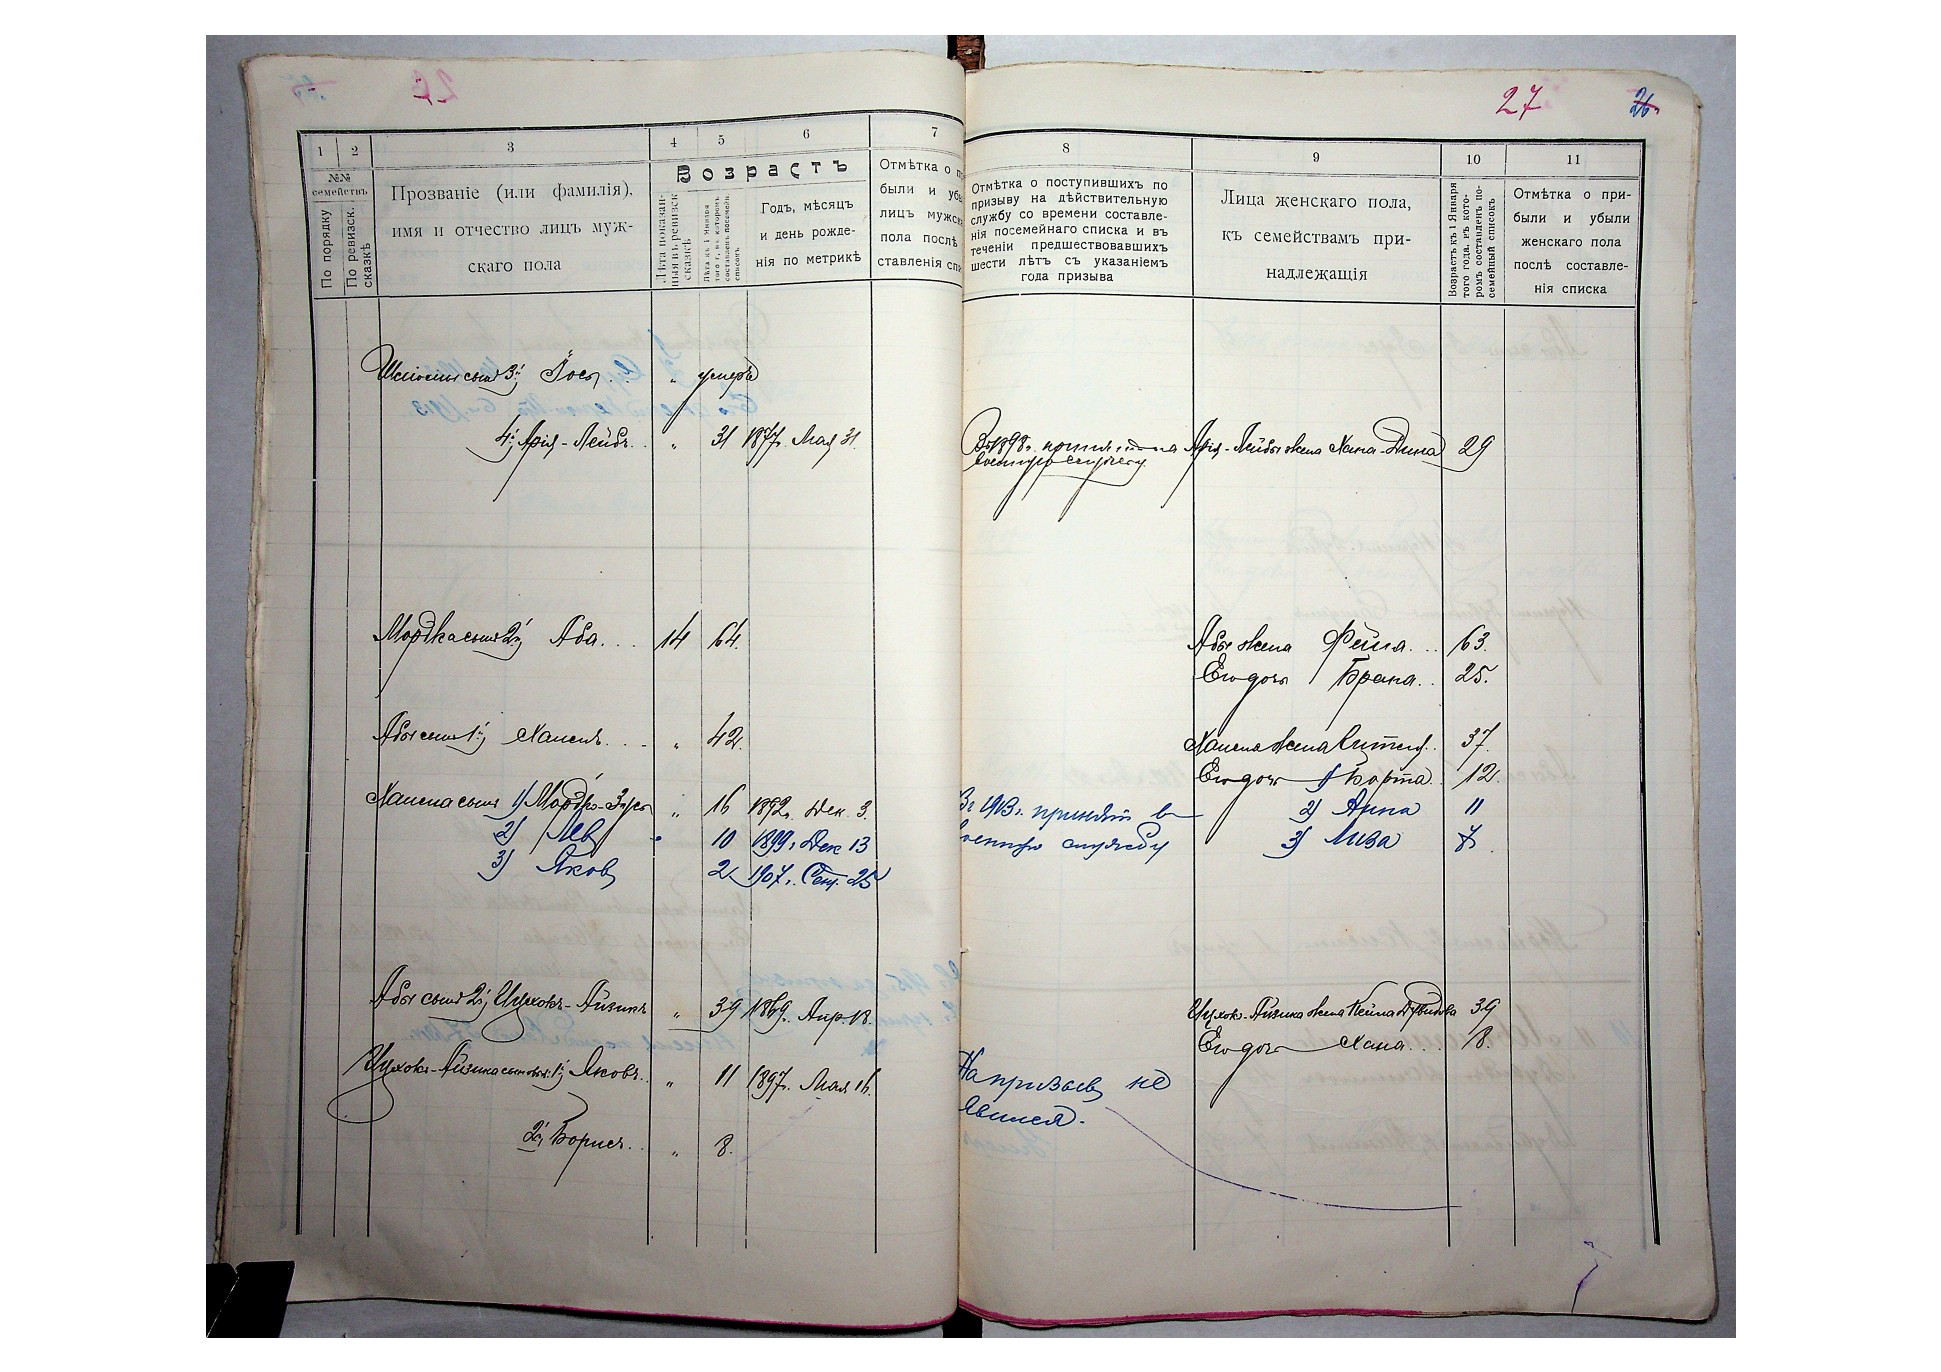 27 26
1 2 3 4 5 6 7
№№ семействъ
По порядку
По ревизск. сказкѣ
Прозваніе (или фамилія),
имя и отчество лицъ муж-
скаго пола
Возрастъ
Лѣта показан-
ныя въ ревизск
сказкѣ
Лѣта къ 1 Января
того г., въ которомъ
составленъ посемейн
списокъ
Годъ, мѣсяцъ
и день рожде-
нія по метрикѣ
Отмѣтка о п
были и убы
лицъ мужск
пола послѣ
ставленія спи
8 9 10 11
Отмѣтка о поступившихъ по
призыву на дѣйствительную
службу со времени составле-
нія посемейнаго списка и въ
теченіи предшествовавшихъ
шести лѣтъ съ указаніемъ
года призыва
Лица женскаго пола,
къ семействамъ при-
надлежащія
Возрастъ къ 1 Января
того года, въ кото-
ромъ составленъ по-
семейный списокъ
Отмѣтка о при-
были и убыли
женскаго пола
послѣ составле-
нія списка
сынъ 3й Іосъ „ умеръ
4й Арія-Лейбъ „ 31 1877г. Мая 31
Въ 1898г. принятъ на
военную службу
Арія-Лейбы жена Хана-Дина 29
Мордка сынъ 2й Аба 14 64
Абы жена Фейга 63.
Его дочь Брана 25.
Абы сынъ 1й Хаимъ „ 42
жена 37.
Его дочь 1) Берта 12
сынъ 1) „ 16 1892г. Дек. 3.
2) Лев „ 10 1899г. Дек 13
3) Яков 2 1907г. Сент. 25
Въ 1913г. принят в
военную службу
2) Анна 11
3) Лиза 7
Абы сынъ 2й Ицхокъ-Айзикъ „ 39 1869г. Апр. 18.
Ицхокъ-Айзика жена 39
Его дочь Хана 8.
Ицхокъ-Айзика сыновья: 1й Яковъ „ 11 1897г. Мая 16.
На призыв не
явился.
2й Борисъ „ 8.